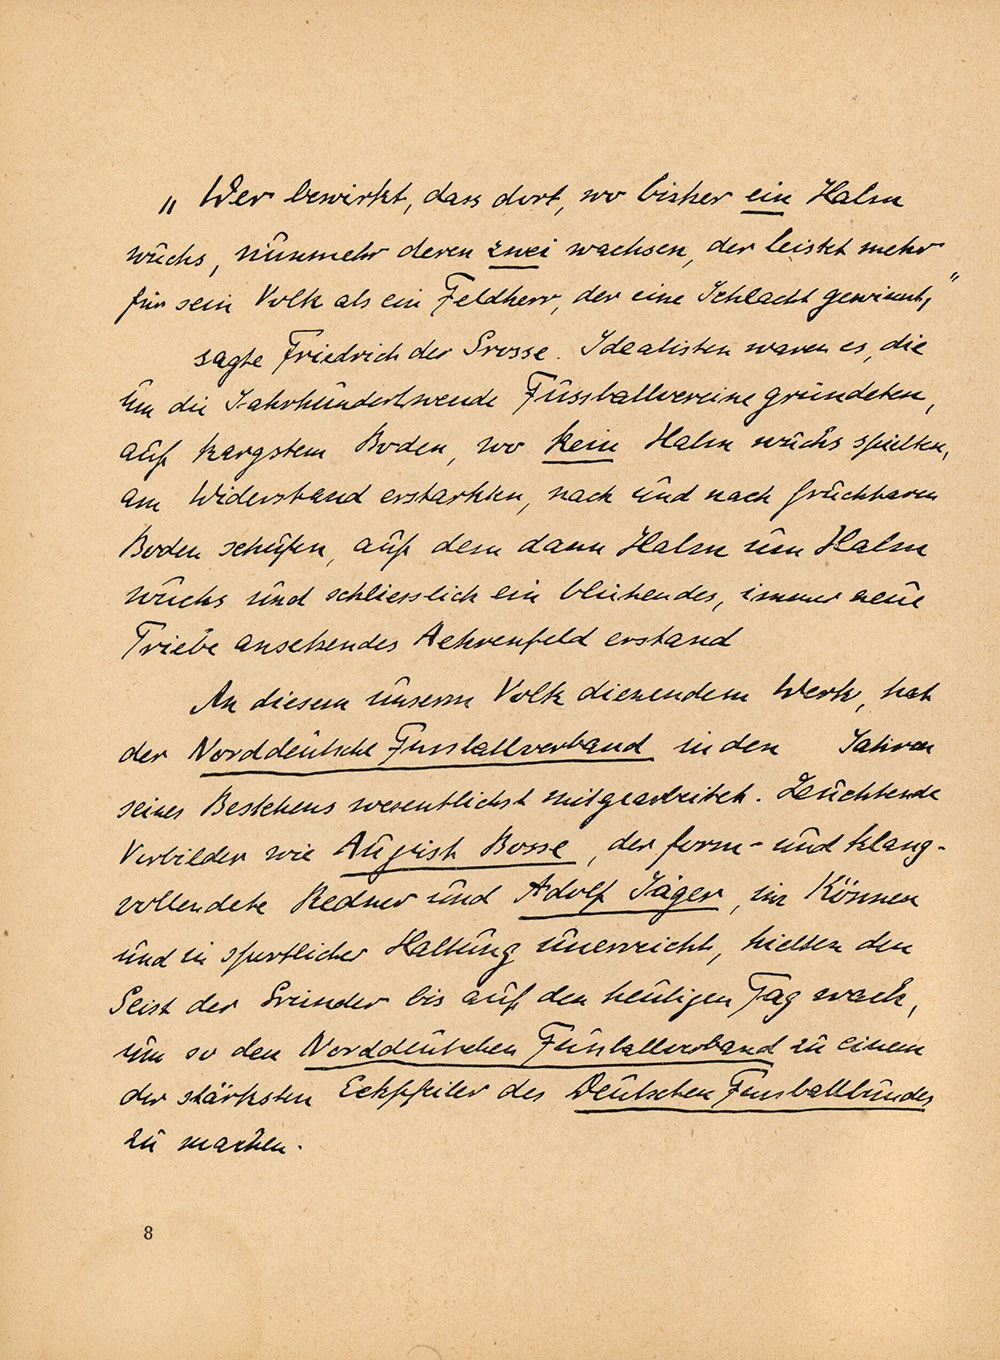 „Wer bewirkt, dass dort, wo bisher ein Halm
wuchs, nunmehr deren zwei wachsen, der leistet mehr
für sein Volk als ein Feldherr, der eine Schlacht gewinnt,"
sagte Friedrich der Grosse. Idealisten waren es, die
um die Jahrhundertwende Fussballvereine gründeten,
auf kargstem Boden, wo kein Halm wuchs spielten,
am Widerstand erstarkten, nach und nach fruchtbaren
Boden schufen, auf dem dann Halm um Halm
wuchs und schliesslich ein blühendes, immer neue
Triebe ansetzendes Aehrenfeld erstand
An diesem unserm Volk dienendem Werk, hat
der Norddeutsche Fussballverband in den Jahren
seines Bestehens wesentlichst mitgearbeitet. Leuchtende
Vorbilder wie August Bosse, der form- und klang-
vollendete Redner und Adolf Jäger, im Können
und in sportlicher Haltung unerreicht, hielten den
Geist der Gründer bis auf den heutigen Tag wach,
um so den Norddeutschen Fussballverband zu einem
der stärksten Eckpfeiler des Deutschen Fussballbundes
zu machen.
8